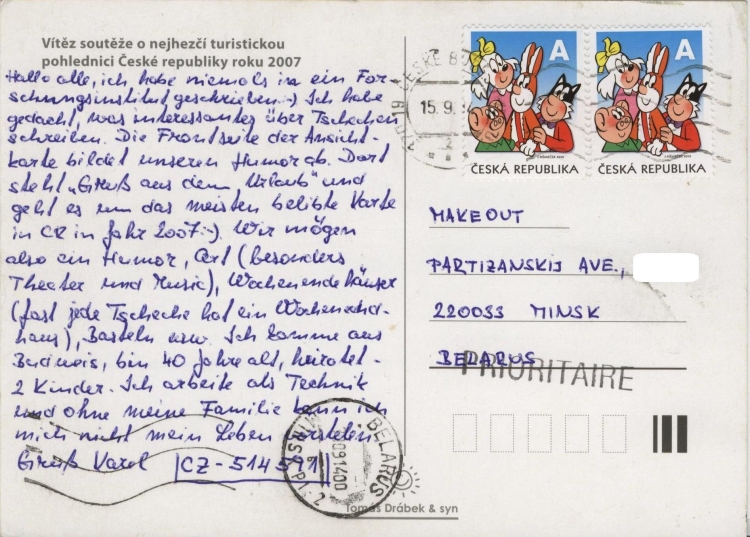 Vítěz soutěže o nejhezčí turistickou
pohlednici České republiky roku 2007
Hallo alle, ich habe niemals in ein For-
schungsinstitut geschrieben :-) Ich habe
gedacht, was interessantes über Tschechen
schreiben. Die Frontseite der Ansicht-
karte bildet unseren Humor ab. Dort
steht "Gruß aus dem Urlaub" und
geht es um das meisten belibte Karte
in CR in Jahr 2007 :-). Wir mögen
also ein Humor, Art (besonders
Theater und Music), Wochenende häuser
(fast jede Tscheche hat ein Wochenend-
haus), Basteln usw. Ich komme aus
Budweis, bin 40 Jahre alt, heiratet -
2 Kinder. Ich arbeite als Technik
und ohne meine Familie kann ich
mich nicht mein Leben vorstelen
Gruß Karel CZ-514591
Tomáš Drábek & syn
ČESKÉ BU
15.9.
A
ČESKÁ REPUBLIKA
A
ČESKÁ REPUBLIKA
MAKEOUT
PARTIZANSKIJ AVE.,
220033 MINSK
BELARUS
PRIORITAIRE
MINSK
BELARUS